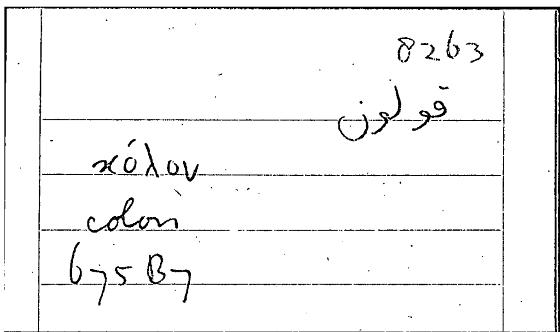 8263
قولون
κόλον
colon
675 B7